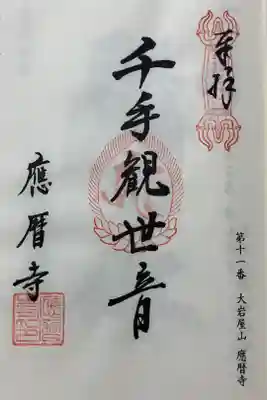 奉拝
第十一番 大岩屋山 應暦寺
千手観世音
應暦寺